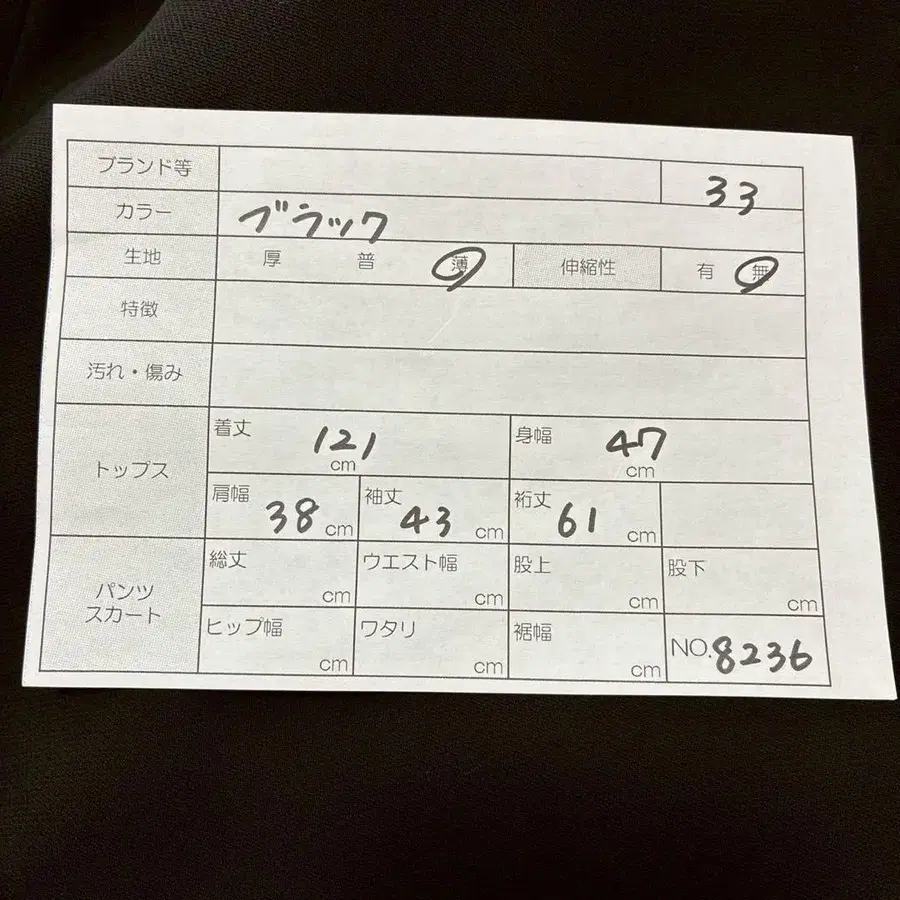 ブランド等 33
カラー ブラック
生地 厚 普 薄 伸縮性 有 無
特徴
汚れ・傷み
トップス
着丈 121 cm 身幅 47 cm
肩幅 38 cm 袖丈 43 cm 裄丈 61 cm
パンツ
スカート
総丈 cm ウエスト幅 cm 股上 cm 股下 cm
ヒップ幅 cm ワタリ cm 裾幅 cm NO.8236